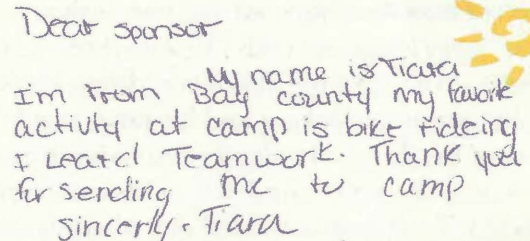 Dear sponsor
My name is Tiara
I'm From Bay county my favorite
activity at camp is bike rideing
I Leard Teamwork. Thank you
for sending me to camp
sincerly. Tiara